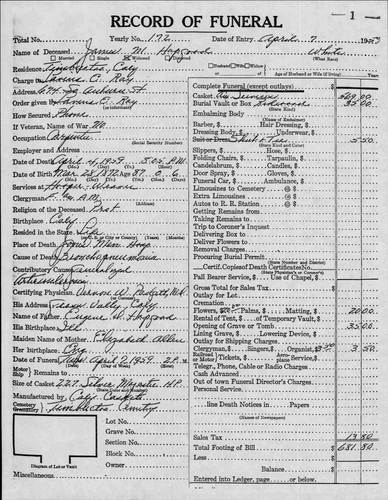 RECORD OF FUNERAL
1
Total No. Yearly No. 172 Date of Entry April 7 19
Name of Deceased James M. White
Married Single Widowed Divorced (What Race)
Residence Calif Husband Wife of
Charge to James E. Ray Age of Husband or Wife (if living) Years
Address Auburn St Complete Funeral (except outlays) $
Order given by James E. Ray Casket 569.00
How Secured Phone Burial Vault or Box 35.00
(State Kind)
If Veteran, Name of War No Embalming Body
(Name of Embalmer)
Occupation Carpenter Barber, $ Hair Dressing, $
(Social Security Number) Dressing Body $ Underwear, $
Employer and Address Suit or Dress
(State Kind and Color)
Date of Death April 4, 1959 5:05 A.M. Slippers, $ Hose, $
Date of Birth Mar 28 1872 87 0 6 Folding Chairs, $ Tarpaulin, $
Services at Hooper Weaver Candelabrum, $ Candles, $
Clergyman F. & A.M. Door Spray, $ Gloves, $
Religion of the Deceased Prot Funeral Car, $ Ambulance, $
Birthplace Calif Limousines to Cemetery @ $
Resided in the State Life Extra Limousines @ $
Autos to R. R. Station @ $
Place of Death Hosp Getting Remains from
Cause of Death Bronchopneumonia Taking Remains to
Contributory Cause Trip to Coroner's Inquest
Delivering Box to
Deliver Flowers to
Removal Charges
Procuring Burial Permit
(State Number and District)
Certif. Copies of Death Certificates No.
(State Physician's or Coroner's)
Pall Bearer Service, $ Use of Chapel, $
Certifying Physician Vernon W. M.D. Gross Total for Sales Tax $
His Address Grass Valley, Calif Outlay for Lot
Name of Father Eugene W. Cremation
His Birthplace Ill Flowers, $ Palms, $ Matting, $ 20.00
Maiden Name of Mother Elizabeth Allen Rental of Tent, $ of Temporary Vault, $
Her birthplace Opening of Grave or Tomb 35.00
Date of Funeral Tues April 7 1959 2 P.M. Lining Grave, $ Lowering Device, $
Outlay for Shipping Charges
Motor Ship Remains to Clergyman, $ Singers, $ Organist, $ 3.50 3.50
Size of Casket Silver Majestic Railroad Motor Tickets, $ Aero-plane Service, $
Telegr., Phone, Cable or Radio Charges
Manufactured by Calif Caskets Cash Advanced
Cemetery Crematory Out of town Funeral Director's Charges
Personal Service
Lot No. line Death Notices in Papers
Grave No. (Names of Newspapers)
Section No. Sales Tax 13.80
Block No. Total Footing of Bill $ 681.80
Owner Less
Diagram of Lot or Vault Balance $
Miscellaneous Entered into Ledger, page or below.